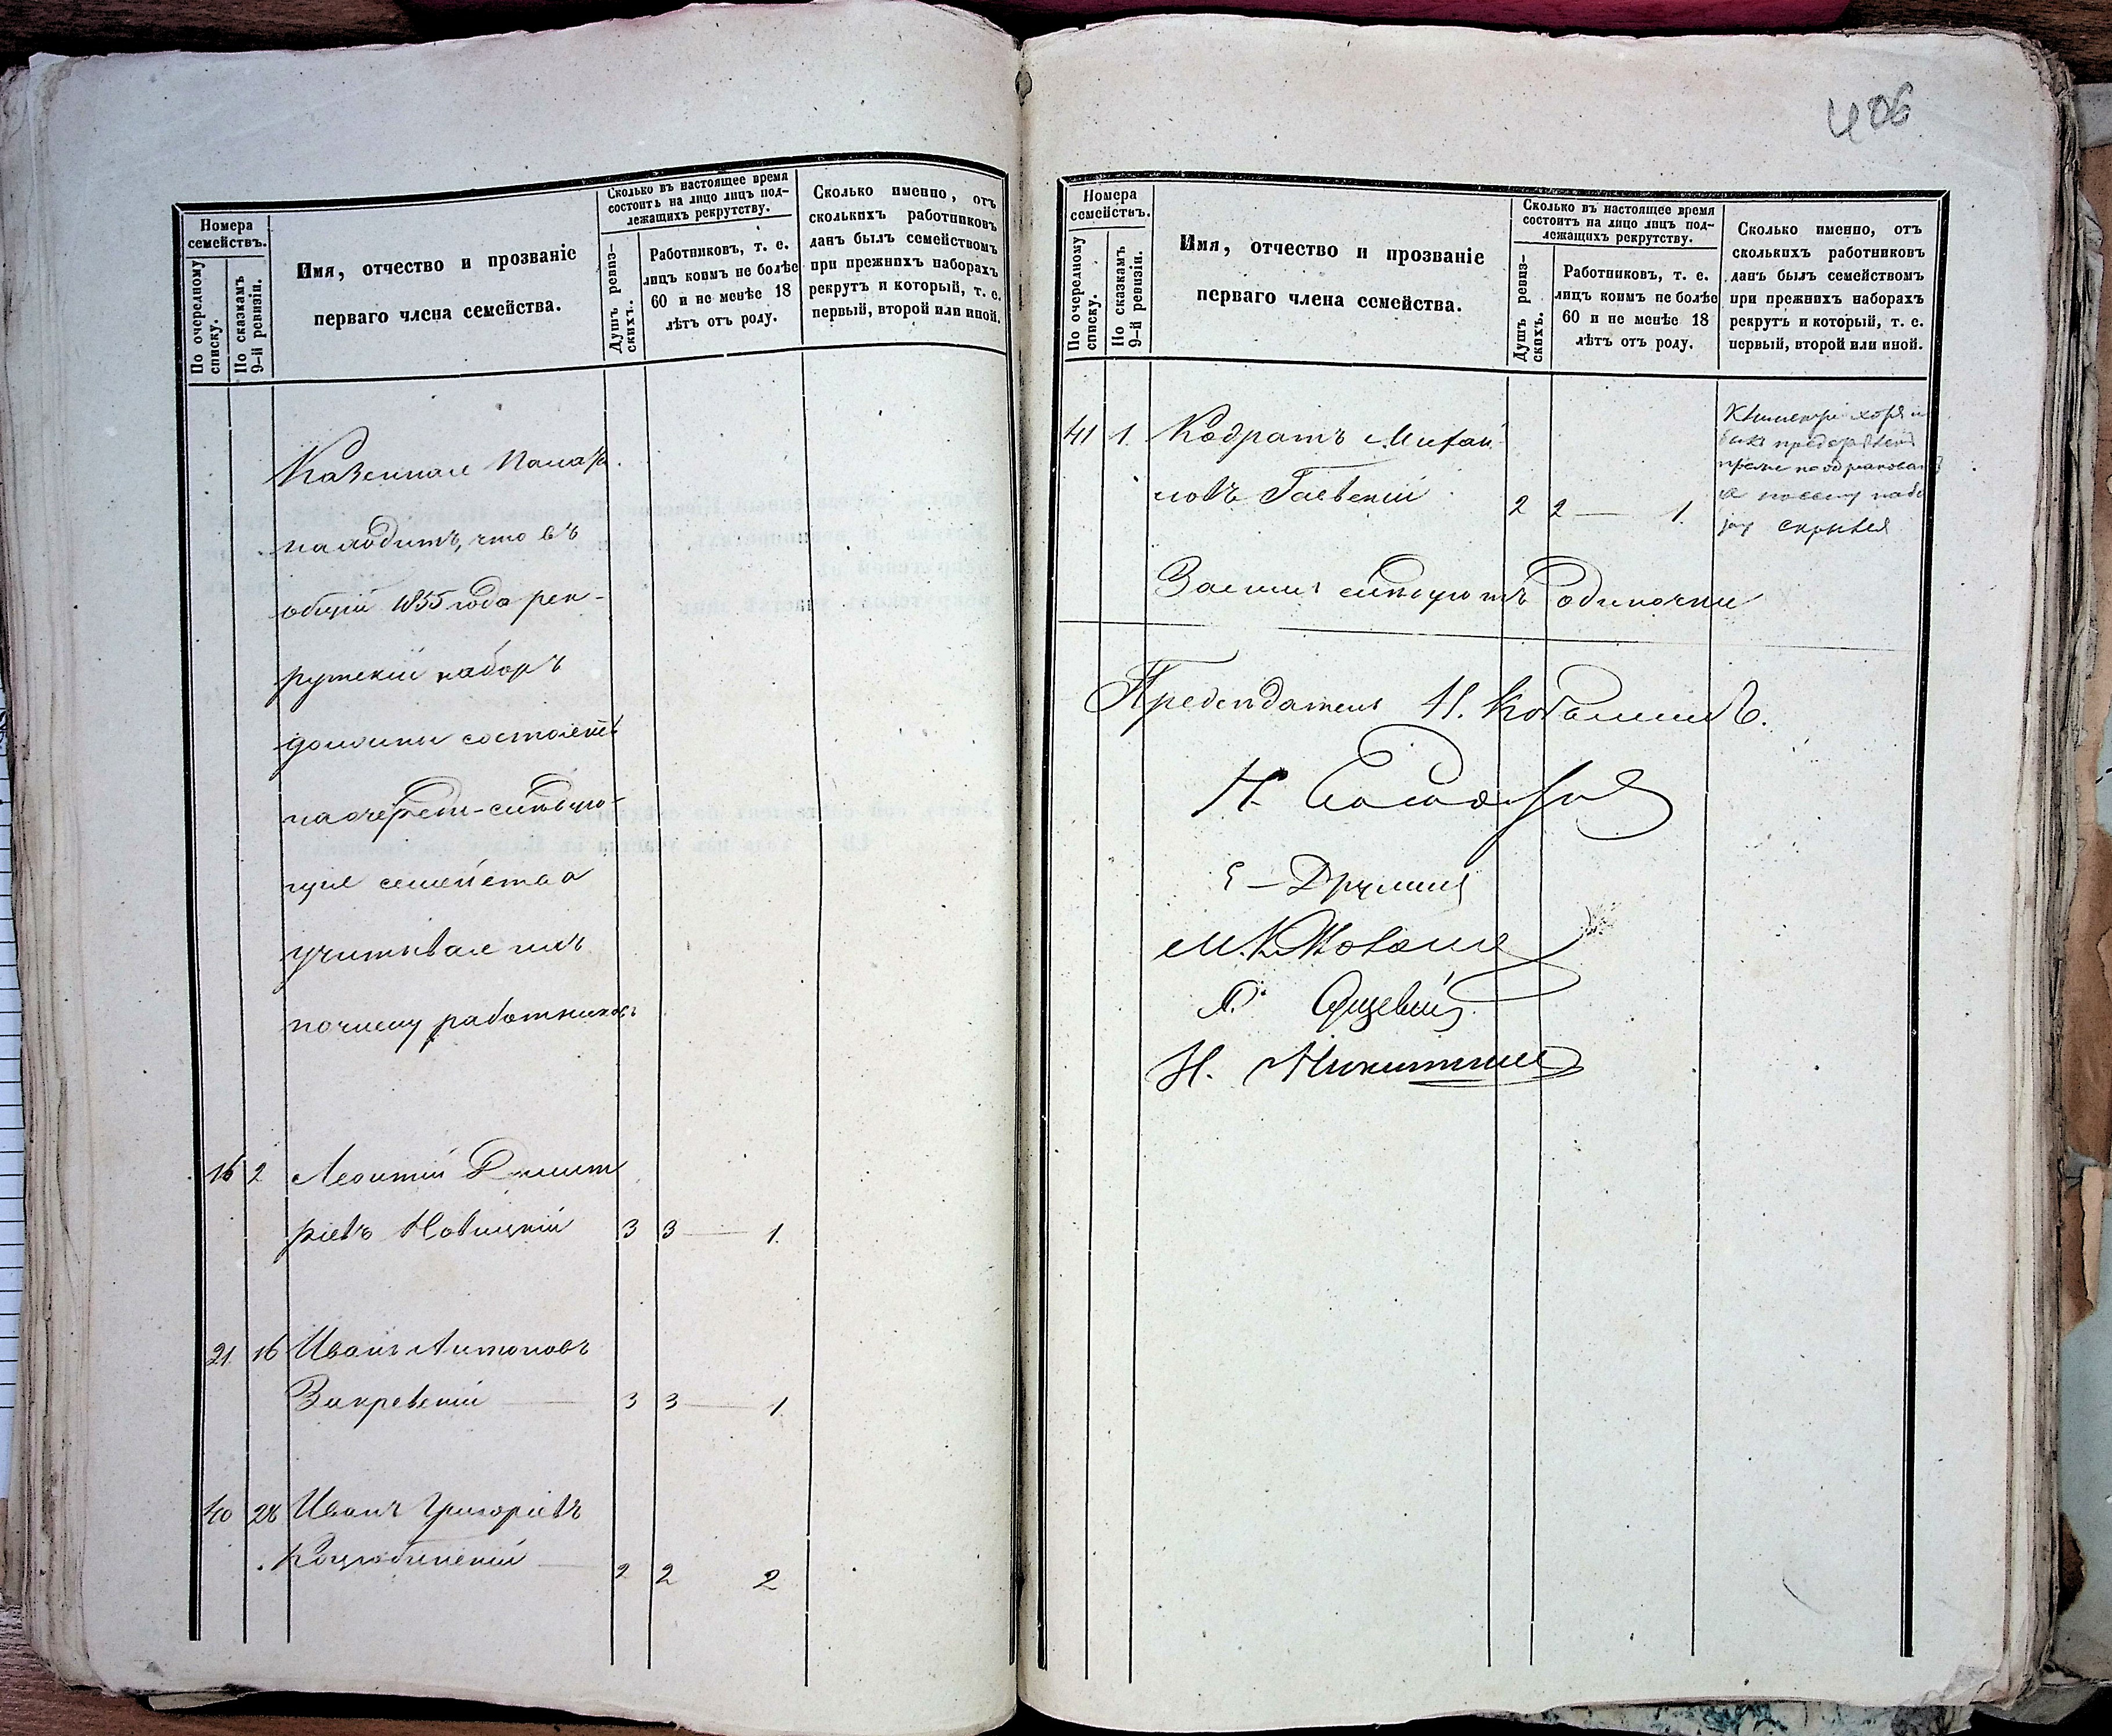 Номера семействъ.
По очередному списку.
По сказкамъ 9-й ревизіи.
Имя, отчество и прозваніе
перваго члена семейства.
Сколько въ настоящее время
состоитъ на лицо лицъ под-
лежащихъ рекрутству.
Душъ ревиз-
скихъ.
Работниковъ, т. е.
лицъ коимъ не болѣе
60 и не менѣе 18
лѣтъ отъ роду.
Сколько именно, отъ
сколькихъ работниковъ
данъ былъ семействомъ
при прежнихъ наборахъ
рекрутъ и который, т. е.
первый, второй или иной.
Казенная Палата
находитъ, что въ
общій 1855 года рек-
рутскій наборъ
должны состоять
на очереди слѣдую-
щія семейства
учитывая ихъ
по числу работниковъ
16 2 Леонтій Дмит
ріевъ Новицкій 3 3 — 1.
21 16 Иванъ Антоновъ
Закревскій — 3 3 — 1
40 28 Иванъ Григорьевъ
2 2 2
406
Номера
семействъ.
По очередному
списку.
По сказкамъ
9-й ревизіи.
Имя, отчество и прозваніе
перваго члена семейства.
Сколько въ настоящее время
состоитъ на лицо лицъ под-
лежащихъ рекрутству.
Душъ ревиз-
скихъ.
Работниковъ, т. е.
лицъ коимъ не болѣе
60 и не менѣе 18
лѣтъ отъ роду.
Сколько именно, отъ
сколькихъ работниковъ
данъ былъ семействомъ
при прежнихъ наборахъ
рекрутъ и который, т. е.
первый, второй или иной.
41 1. Кодратъ Михай
ловъ Гаевскій 2 2 — 1.
За симъ слѣдуютъ одиночки
Предсѣдатель Н.
Н. Никитинъ